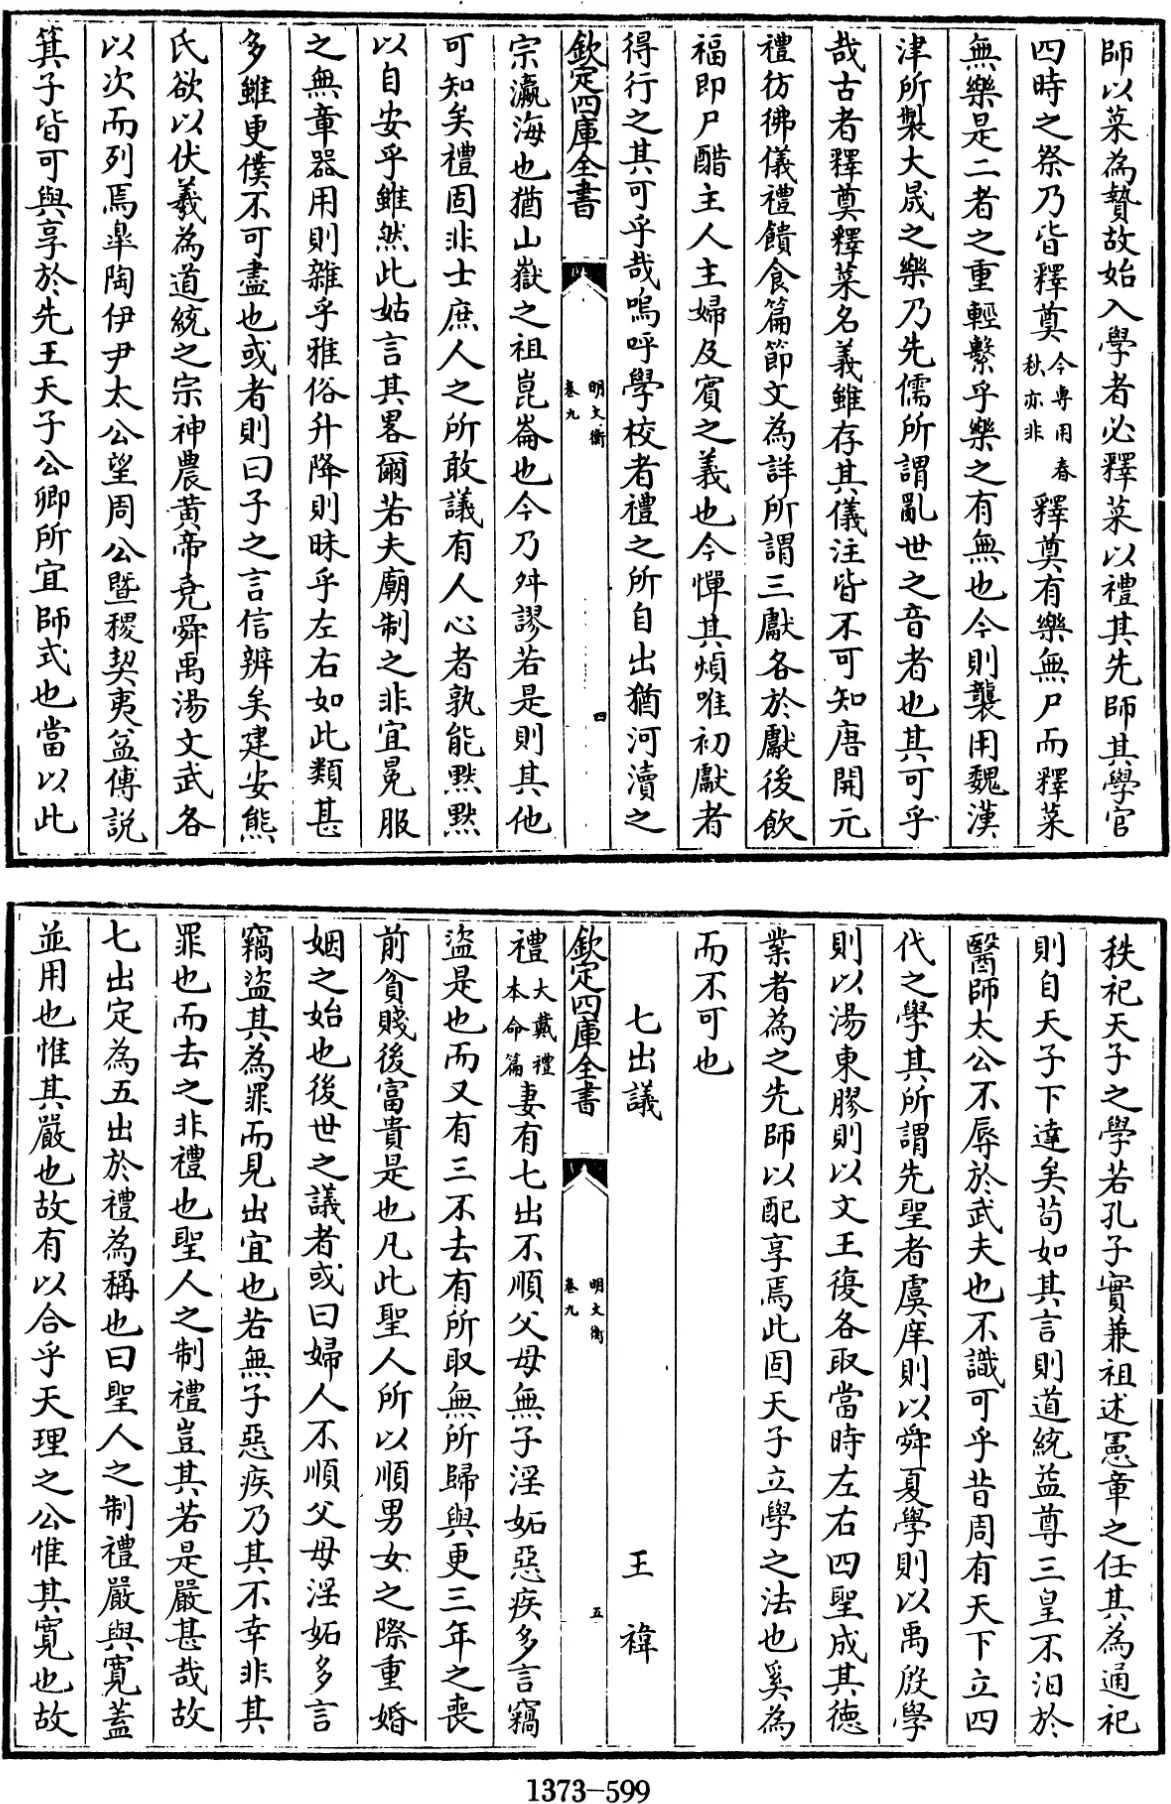 師以菜為贄故始入學者必釋菜以禮其先師其學官
四時之祭乃皆釋奠今專用春秋亦非釋奠有樂無尸而釋菜
無樂是二者之重輕繫乎樂之有無也今則襲用魏漢
津所製大晟之樂乃先儒所謂亂世之音者也其可乎
哉古者釋奠釋菜名義雖存其儀注皆不可知唐開元
禮彷彿儀禮饋食篇節文為詳所謂三獻各於獻後飲
福即尸醋主人主婦及賓之義也今憚其煩唯初獻者
得行之其可乎哉嗚呼學校者禮之所自出猶河瀆之
欽定四庫全書
明文衡
卷九
四
宗瀛海也猶山嶽之祖崑崙也今乃舛謬若是則其他
可知矣禮固非士庶人之所敢議有人心者孰能默默
以自安乎雖然此姑言其畧爾若夫廟制之非宜冕服
之無章器用則雜乎雅俗升降則昧乎左右如此類甚
多雖更僕不可盡也或者則曰子之言信辨矣建安熊
氏欲以伏羲為道統之宗神農黃帝堯舜禹湯文武各
以次而列焉臯陶伊尹太公望周公暨稷契夷益傅説
箕子皆可與享於先王天子公卿所宜師式也當以此
秩祀天子之學若孔子實兼祖述憲章之任其為通祀
則自天子下達矣苟如其言則道統益尊三皇不汨於
醫師太公不辱於武夫也不識可乎昔周有天下立四
代之學其所謂先聖者虞庠則以舜夏學則以禹殷學
則以湯東膠則以文王復各取當時左右四聖成其徳
業者為之先師以配享焉此固天子立學之法也奚為
而不可也
七出議
王禕
欽定四庫全書
明文衡
卷九
五
禮大戴禮本命篇妻有七出不順父母無子淫妬惡疾多言竊
盜是也而又有三不去有所取無所歸與更三年之喪
前貧賤後富貴是也凡此聖人所以順男女之際重婚
姻之始也後世之議者或曰婦人不順父母淫妬多言
竊盜其為罪而見出宜也若無子惡疾乃其不幸非其
罪也而去之非禮也聖人之制禮豈其若是嚴甚哉故
七出定為五出於禮為稱也曰聖人之制禮嚴與寬蓋
並用也惟其嚴也故有以合乎天理之公惟其寬也故
1373-599